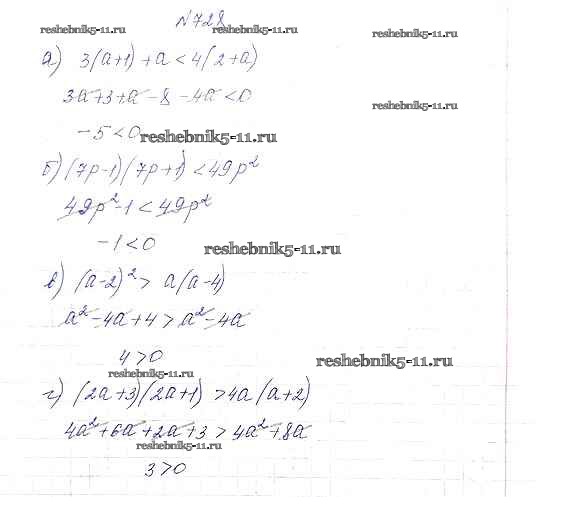 №728
reshebnik5-11.ru reshebnik5-11.ru reshebnik5-11.ru
а) 3(a+1)+a<4(2+a)
3a+3+a-8-4a<0
reshebnik5-11.ru
-5<0 reshebnik5-11.ru
б) (7p-1)(7p+1)<49p²
49p²-1<49p²
-1<0 reshebnik5-11.ru
в) (a-2)²> a(a-4)
a²-4a+4>a²-4a
4>0 reshebnik5-11.ru
reshebnik5-11.ru
г) (2a+3)(2a+1)>4a(a+2)
4a²+6a+2a+3>4a²+8a
reshebnik5-11.ru
3>0